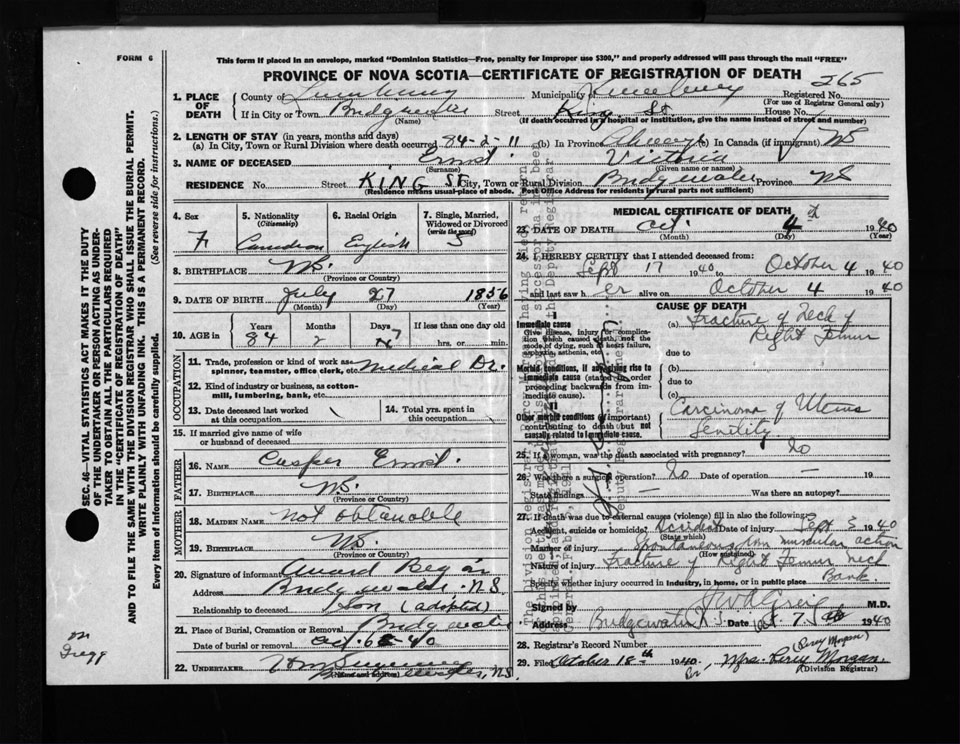 FORM 6
This form if placed in an envelope, marked "Dominion Statistics—Free, penalty for improper use $300," and properly addressed will pass through the mail "FREE"
PROVINCE OF NOVA SCOTIA—CERTIFICATE OF REGISTRATION OF DEATH
265
1. PLACE OF DEATH
County of Lunenburg Municipality of Lunenburg Registered No.
(For use of Registrar General only)
If in City or Town Bridgewater Street King St. House No.
(Name) (If death occurred in a hospital or institution, give the name instead of street and number)
2. LENGTH OF STAY (in years, months and days)
(a) In City, Town or Rural Division where death occurred 84-2-11 (b) In Province Always (c) In Canada (if immigrant) NS
3. NAME OF DECEASED Ernst Victoria
(Surname) (Given name or names)
RESIDENCE No. Street KING ST City, Town or Rural Division Bridgewater Province NS
(Residence means usual place of abode. Post Office Address for Residents in rural parts not sufficient)
4. Sex F
5. Nationality (Citizenship) Canadian
6. Racial Origin English
7. Single, Married, Widowed or Divorced (write the word) S
8. BIRTHPLACE NS.
(Province or Country)
9. DATE OF BIRTH July 27 1856
(Month) (Day) (Year)
10. AGE in Years Months Days If less than one day old
84 2 7 hrs. or min.
OCCUPATION
11. Trade, profession or kind of work as spinner, teamster, office clerk, etc. Medical Dr.
12. Kind of industry or business, as cotton-mill, lumbering, bank, etc.
13. Date deceased last worked at this occupation
14. Total yrs. spent in this occupation
15. If married give name of wife or husband of deceased
FATHER
16. NAME Casper Ernst
17. BIRTHPLACE NS.
(Province or Country)
MOTHER
18. MAIDEN NAME Not obtainable
19. BIRTHPLACE NS.
(Province or Country)
20. Signature of informant
Address Bridgewater. N.S
Relationship to deceased Son (adopted)
21. Place of Burial, Cremation or Removal Bridgewater
Date of burial or removal Oct. 6 - 40
22. UNDERTAKER
(Name and address) Bridgewater, NS.
MEDICAL CERTIFICATE OF DEATH
23. DATE OF DEATH Oct. 4th 1940
(Month) (Day) (Year)
24. I HEREBY CERTIFY that I attended deceased from:
Sept 17 1940 to October 4 1940
and last saw her alive on October 4 1940
CAUSE OF DEATH
Immediate cause
Give disease, injury or complication which caused death, not the mode of dying, such as heart failure, asphyxia, asthenia, etc.
(a) Fracture of Neck of Right Femur
due to
Morbid conditions, if any, giving rise to immediate cause (stated in order proceeding backwards from immediate cause)
(b)
due to
(c)
II
Other morbid conditions (if important) contributing to death but not causally related to immediate cause.
Carcinoma of Uterus
Senility
25. If a woman, was the death associated with pregnancy? No
26. Was there a surgical operation? No Date of operation — 19
State findings — Was there an autopsy?
27. If death was due to external causes (violence) fill in also the following:
Accident, suicide or homicide? Accident Date of injury Sept 3 1940
(State which)
Manner of injury Spontaneous from muscular action
(How sustained)
Nature of injury Fracture of Right Femur neck
Specify whether injury occurred in industry, in home, or in public place Bank.
Signed by M.D.
Address Bridgewater N.S. Date Oct. 7 1940
28. Registrar's Record Number (Percy Morgan)
29. Filed October 18th 1940. Mrs. Percy Morgan.
(Division Registrar)
SEC. 46—VITAL STATISTICS ACT MAKES IT THE DUTY OF THE UNDERTAKER OR PERSON ACTING AS UNDERTAKER TO OBTAIN ALL THE PARTICULARS REQUIRED IN THE "CERTIFICATE OF REGISTRATION OF DEATH"
AND TO FILE THE SAME WITH THE DIVISION REGISTRAR WHO SHALL ISSUE THE BURIAL PERMIT.
WRITE PLAINLY WITH UNFADING INK. THIS IS A PERMANENT RECORD.
Every item of information should be carefully supplied. (See reverse side for instructions.)